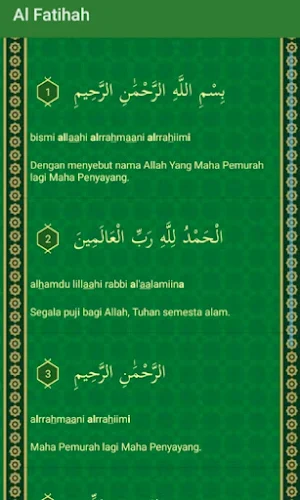 Al Fatihah
1
بِسْمِ اللَّهِ الرَّحْمَٰنِ الرَّحِيمِ
bismi allaahi alrrahmaani alrrahiimi
Dengan menyebut nama Allah Yang Maha Pemurah
lagi Maha Penyayang.
2
الْحَمْدُ لِلَّهِ رَبِّ الْعَالَمِينَ
alhamdu lillaahi rabbi al'aalamiina
Segala puji bagi Allah, Tuhan semesta alam.
3
الرَّحْمَٰنِ الرَّحِيمِ
alrrahmaani alrrahiimi
Maha Pemurah lagi Maha Penyayang.